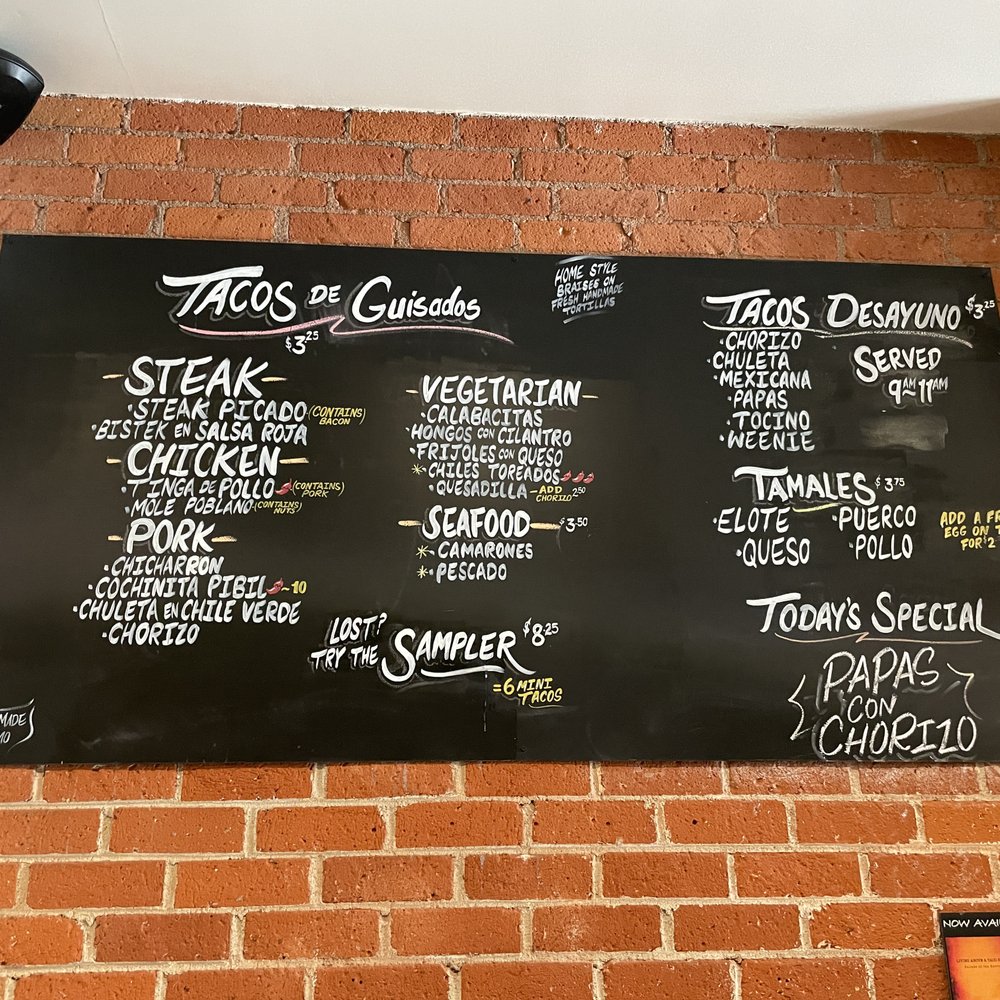 TACOS DE GUISADOS
$3.25
HOME STYLE
BRAISES ON
FRESH HANDMADE
TORTILLAS
STEAK
·STEAK PICADO (CONTAINS BACON)
·BISTEK EN SALSA ROJA
CHICKEN
·TINGA DE POLLO (CONTAINS PORK)
·MOLE POBLANO (CONTAINS NUTS)
PORK
·CHICHARRON
·COCHINITA PIBIL ~10
·CHULETA EN CHILE VERDE
·CHORIZO
VEGETARIAN
·CALABACITAS
·HONGOS CON CILANTRO
·FRIJOLES CON QUESO
*·CHILES TOREADOS
·QUESADILLA - ADD CHORIZO 2.50
SEAFOOD $3.50
*·CAMARONES
*·PESCADO
LOST?
TRY THE SAMPLER $8.25
=6 MINI
TACOS
TACOS DESAYUNO $3.25
·CHORIZO
·CHULETA
·MEXICANA
·PAPAS
·TOCINO
·WEENIE
SERVED
9AM 11AM
TAMALES $3.75
·ELOTE ·PUERCO
·QUESO ·POLLO
ADD A
EGG ON
FOR $2
TODAY'S SPECIAL
PAPAS
CON
CHORIZO
MADE
NOW